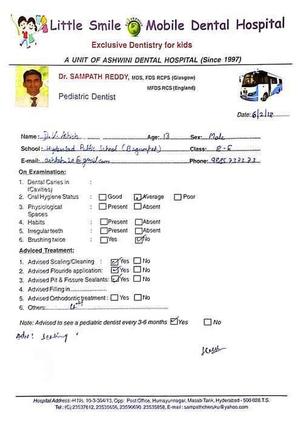 Little Smile Mobile Dental Hospital
Exclusive Dentistry for kids
A UNIT OF ASHWINI DENTAL HOSPITAL (Since 1997)
Dr. SAMPATH REDDY, MDS, FDS RCPS (Glasgow)
MFDS RCS (England)
Pediatric Dentist
Date: 6/2/18
Name: Age: 13 Sex: Male
School: Hyderabad Public School (Begumpet) Class: 8-E
E-mail: Phone:
On Examination:
1. Dental Caries in (Cavities) :
2. Oral Hygiene Status : Good Average Poor
3. Physiological Spaces : Present Absent
4. Habits : Present Absent
5. Irregular teeth : Present Absent
6. Brushing twice : Yes No
Adviced Treatment:
1. Advised Scaling/Cleaning : Yes No
2. Advised Flouride application: Yes No
3. Advised Pit & Fissure Sealants: Yes No
4. Advised Filling in
5. Advised Orthodontic treatment : Yes No
6. Others:
Note: Advised to see a pediatric dentist every 3-6 months Yes No
Hospital Address: H.No. 10-3-304/13, Opp: Post Office, Humayunnagar, Masab Tank, Hyderabad - 500 028.T.S.